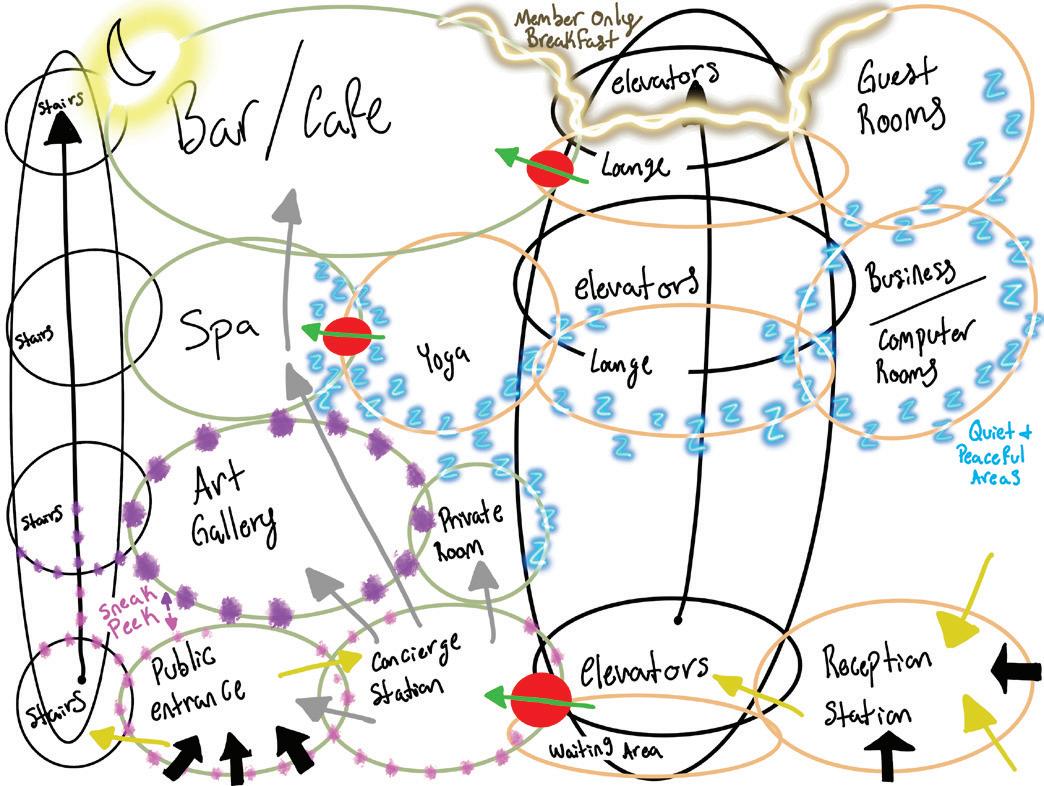 Member Only
Breakfast
Stairs
Bar/Cafe
elevators
Lounge
Guest
Rooms
z z z z z z z z
Stairs
Spa
Yoga
elevators
Lounge
Business
Computer
Rooms
Quiet +
Peaceful
Areas
Stairs
Art
Gallery
Private
Room
Sneak
Peek
Stairs
Public
entrance
Concierge
Station
Elevators
Waiting Area
Reception
Station